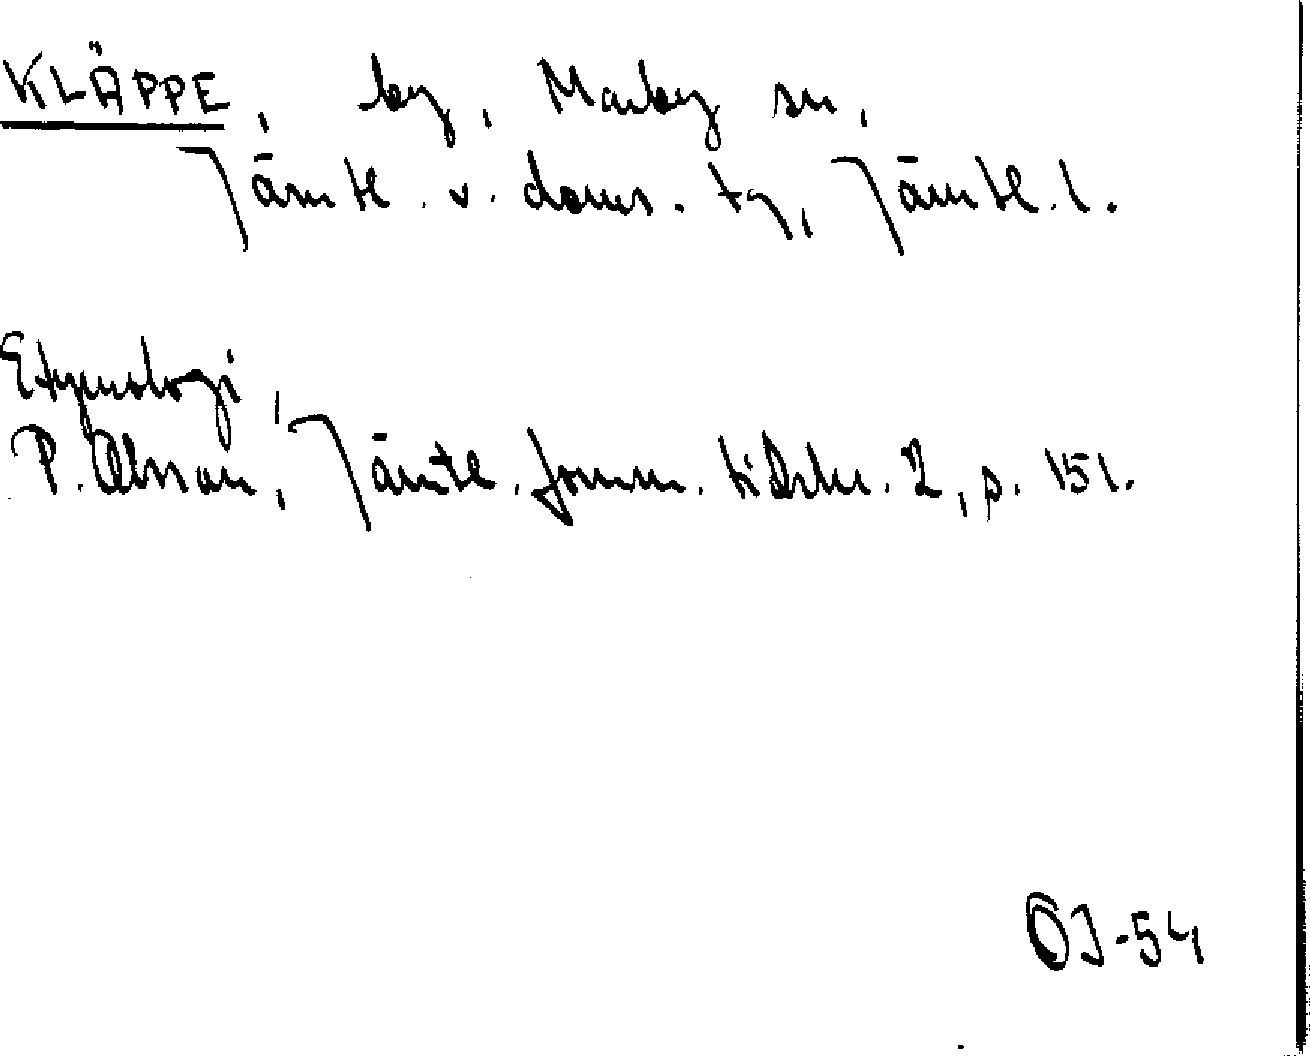 KLÄPPE, by, Marby sn,
Jämtl. v. doms. tg, Jämtl. l.
Etymologi,
P. Olsson, Jämtl. fornm. tidskr. 2, p. 151.
ÖJ-54